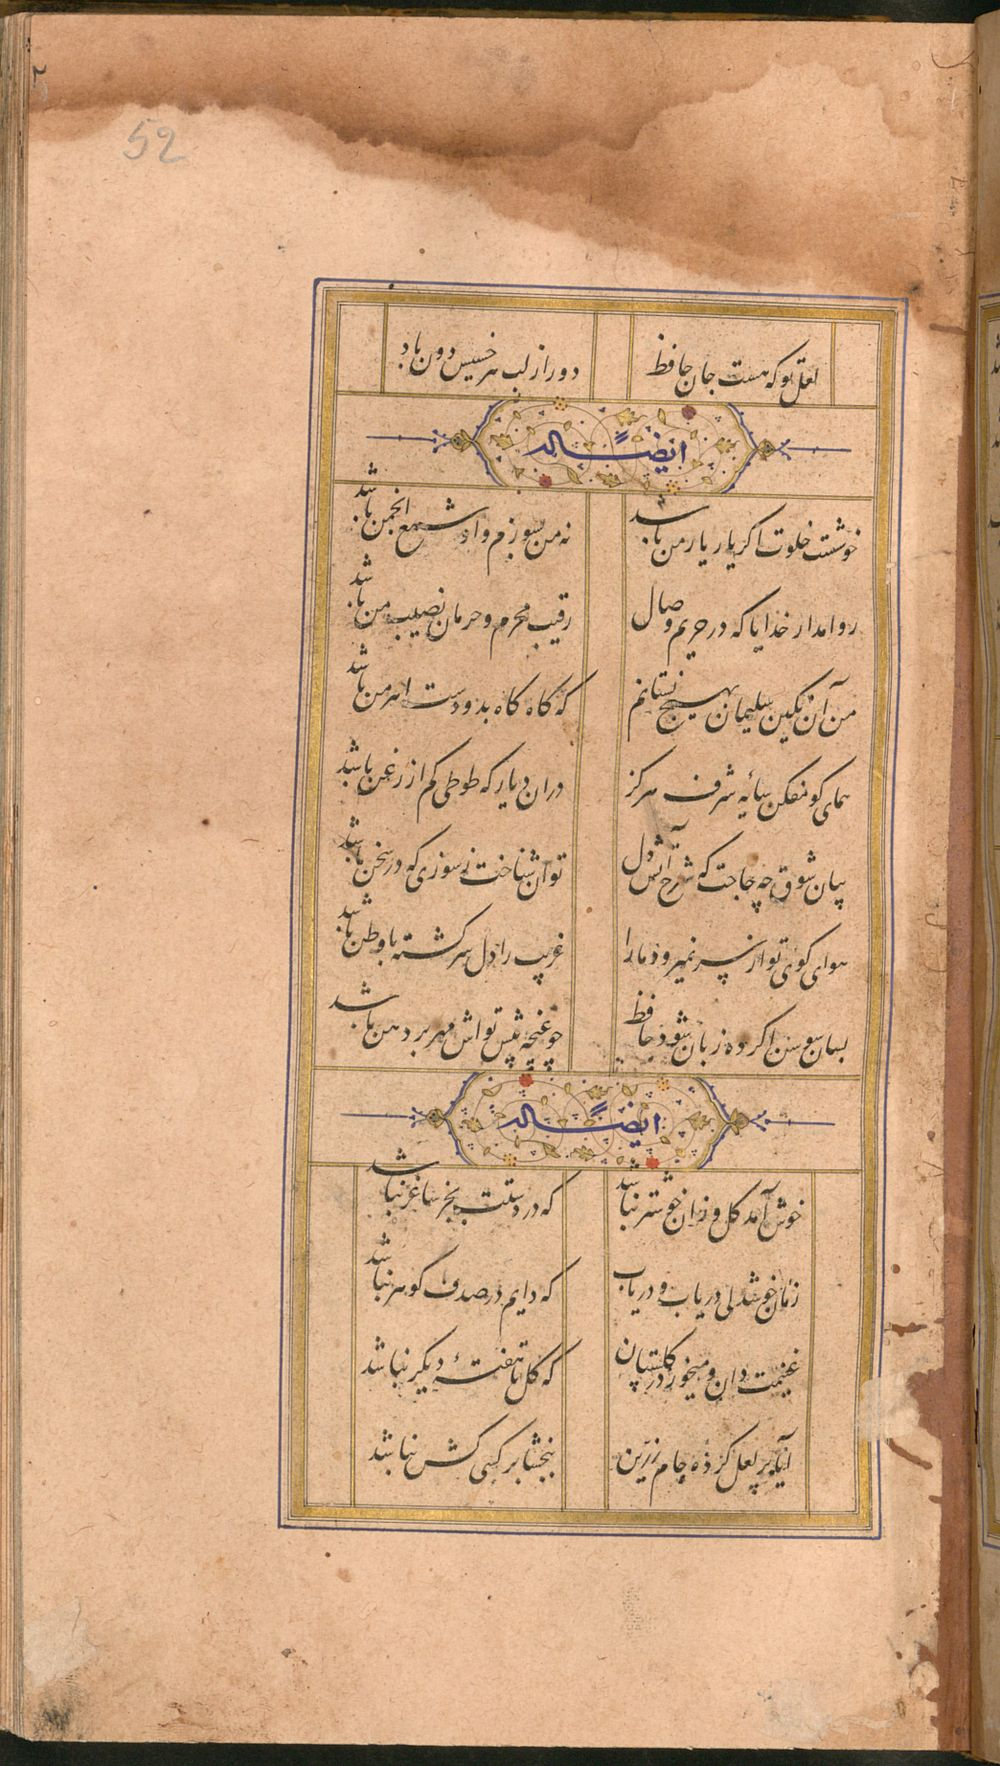 52
لعل تو که هست جان حافظ
دور از لب هر خسیس دون باد
ایضا له
خوشست خلوت اکر یار یار من باشد
نه من بسوزم و او شمع انجمن باشد
روا مدار خدایا که در حریم وصال
رقیب محرم و حرمان نصیب من باشد
من آن نکین سلیمان بهیچ نستانم
که کاه کاه بدو دست اهرمن باشد
همای کو مفکن سایه شرف هرکز
دران دیار که طوطی کم از زغن باشد
بیان شوق چه حاجت که شرح آتش دل
توان شناخت ز سوزی که در سخن باشد
هوای کوی تو از سر نمیرود ما را
غریب را دل سرکشته با وطن باشد
بسان سوسن اکر ده زبان شود حافظ
چو غنچه پیش تواش مهر بر دهن باشد
ایضا له
خوش آمد کل و زان خوشتر نباشد
که در دستت بجز ساغر نباشد
زمان خوشدلی دریاب و دریاب
که دایم در صدف کوهر نباشد
غنیمت دان و میخور در کلستان
که کل تا هفتهٔ دیکر نباشد
ایا پر لعل کرده جام زرین
ببخشا بر کسی کش نباشد